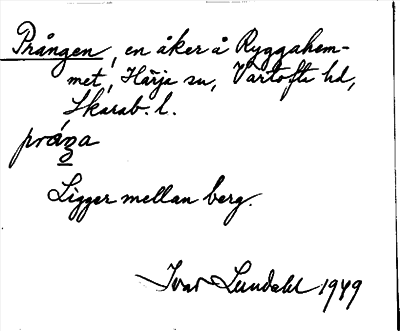 Prången, en åker å Ryggahem-
met, Härja sn, Vartofta hd,
Skarab. l.
prǻŋa
Ligger mellan berg.
Ivar Lundahl 1949